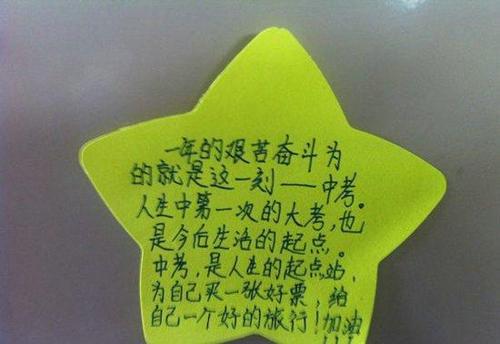 一年的艰苦奋斗为
的就是这一刻——中考。
人生中第一次的大考，也
是今后生活的起点。
中考，是人生的起点站，
为自己买一张好票，给
自己一个好的旅行！加油
！！